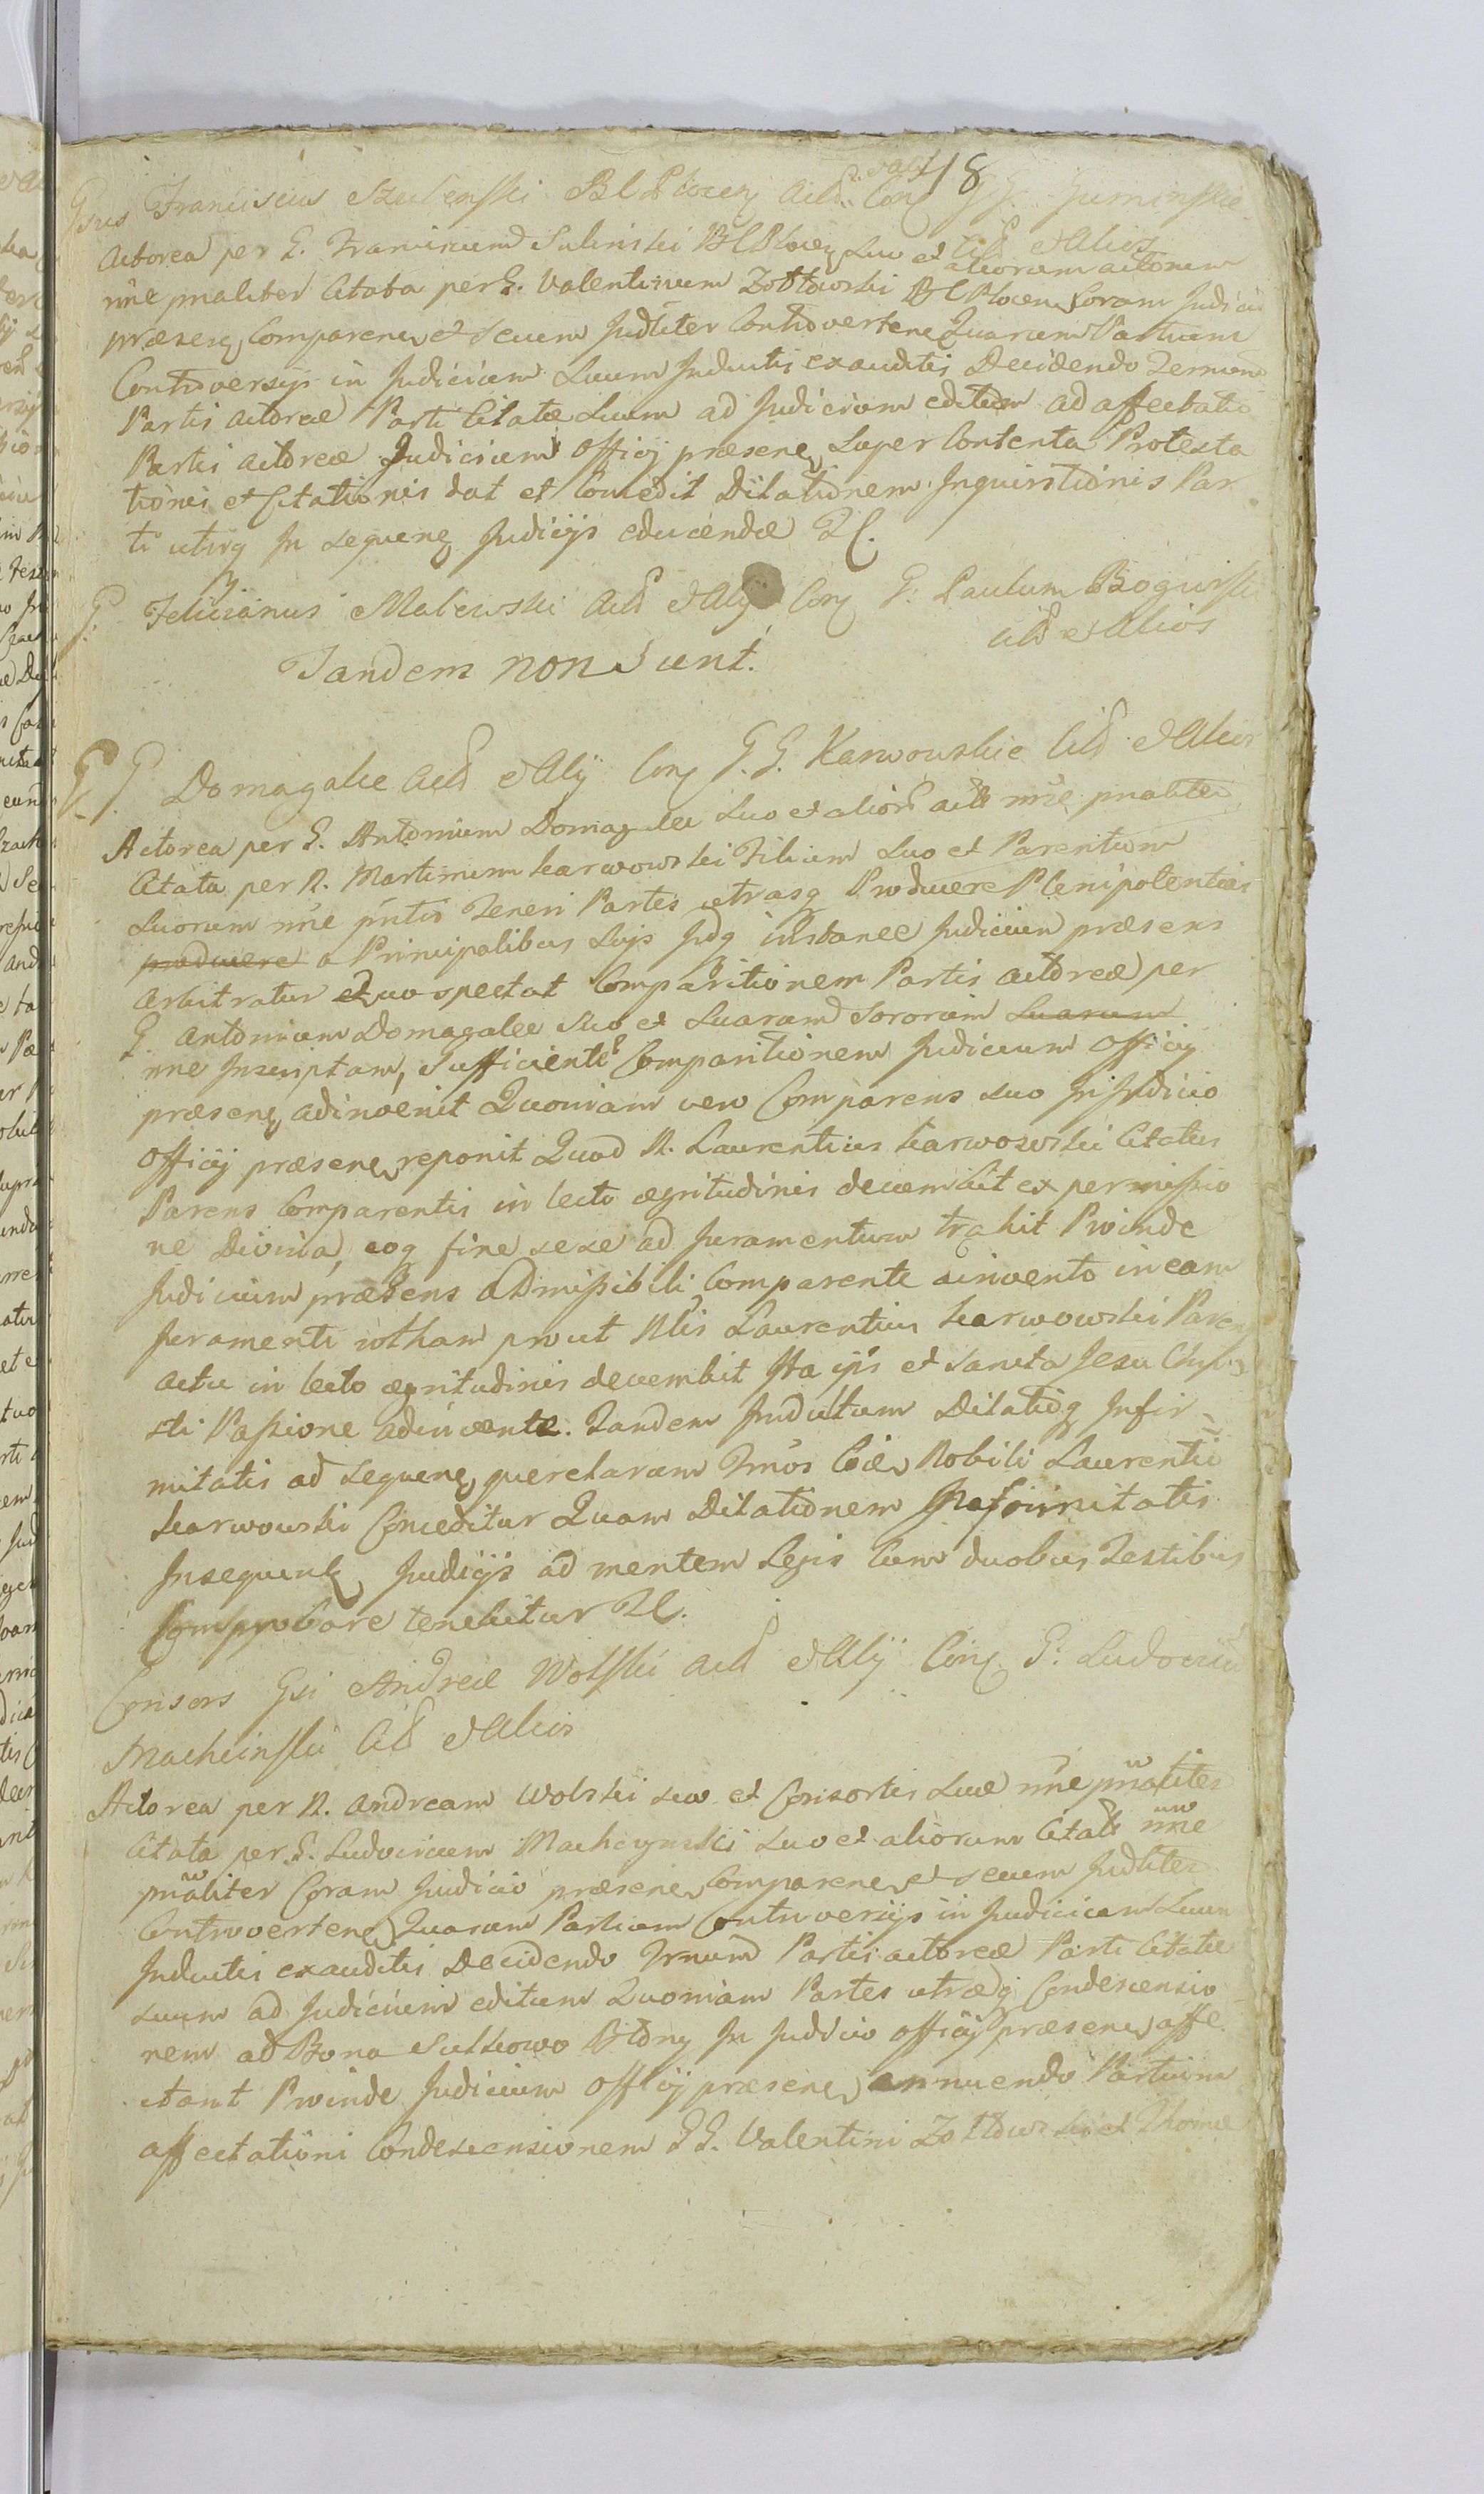 418
Gsus Franciscus Szulenski BCPlocen Act. Conq GG. Guminskie
Citt et Alios
Actorea per G. Franciscum Sulinski BCPlocen suo et aliorum actorum
nne pnaliter Citata per G. Valentinum Zołtowski BCPlocen Coram Judicio
præsenq Comparenq et secum Judliter Controverten Quarum Partium
Controversijs in Judicium suum Inductis exauditis Decidendo Termino
Partis actoreæ Parti Citatæ suum ad Judicium editum ad affectatio
Partis actoreæ Judicium officij præsenq super Contenta Protesta
tionis et Citationis dat et Concedit Dilationem Inquisitionis Par
ti utriq In sequenq Judicijs educendæ
G. Felicianus Malewski Act et Alij Conq G. Paulum Boguski
Citt et Alios
Tandem non sunt.
G G Domagalee Act et Alij Conq G. G. Karwowskie Citt et Alios
Actorea per G. Antonium Domagalee suo et alior act nne pnaliter
Citata per N. Martinum karwowski Filium suo et Parentum
suorum nne pntis Teneri Partes utrasq Producere Plenipotentias
producere a Principalibus suis Idq instanee Judicium præsens
arbitratur Quo spectat Comparitionem Partis actoreæ per
G. Antonium Domagalee suo et suarum Sororum suarum
nne Inscriptam, sufficient Comparitionem Judicium officij
præsenq adinvenit Quoniam vero Comparens suo In Judicio
officij præsenq reponit Quod N. Laurentius karwowski Citatus
Parens Comparentis in lecto ægritudinis decumbit ex permissio
ne Divina, eoq fine sese ad Juramentum trahit Proinde
Judicium præsens admissibili Comparente ainvento in eam
Juramenti rotham prout Nlis Laurentius karwowski Parens
actu in lecto ægritudinis decumbit Ita ijs et sancta Jesu Chri
sti Passione adinvente. Tandem Indultum Dilatioq Infir
mitatis ad sequenq querelarum Tmos Nobili Laurentii
karwowski Conceditur Quam Dilationem Infirmitatis
Insequenq Judicijs ad mentem Legis Cum duobus Testibus
Comprobare tenebitur
Consors Gsi Andreæ Wolski Act et Alij Conq G: Ludovicum
Machcinski Citt et Alios
Actorea per N. Andream Wolski suo et Consortis suæ nne pnaliter
Citata per G. Ludovicum Machcynski suo et aliorum Citatt nne
pnaliter Coram Judicio præsenq Comparenq et secum Judliter
Controvertenq Quarum Partium Controversijs in Judicium suum
Inductis exauditis Decidendo Trnum Partis actoreæ Parti Citatæ
suum ad Judicium editum Quoniam Partes utræq Condescensio
nem ad Bona Sulkowo In Judicio officij præsenq affe
ctant Proinde Judicium officij præsenq annuendo Partium
affectationi Condescensionem GG. Valentini Zołtowski et Thomæ